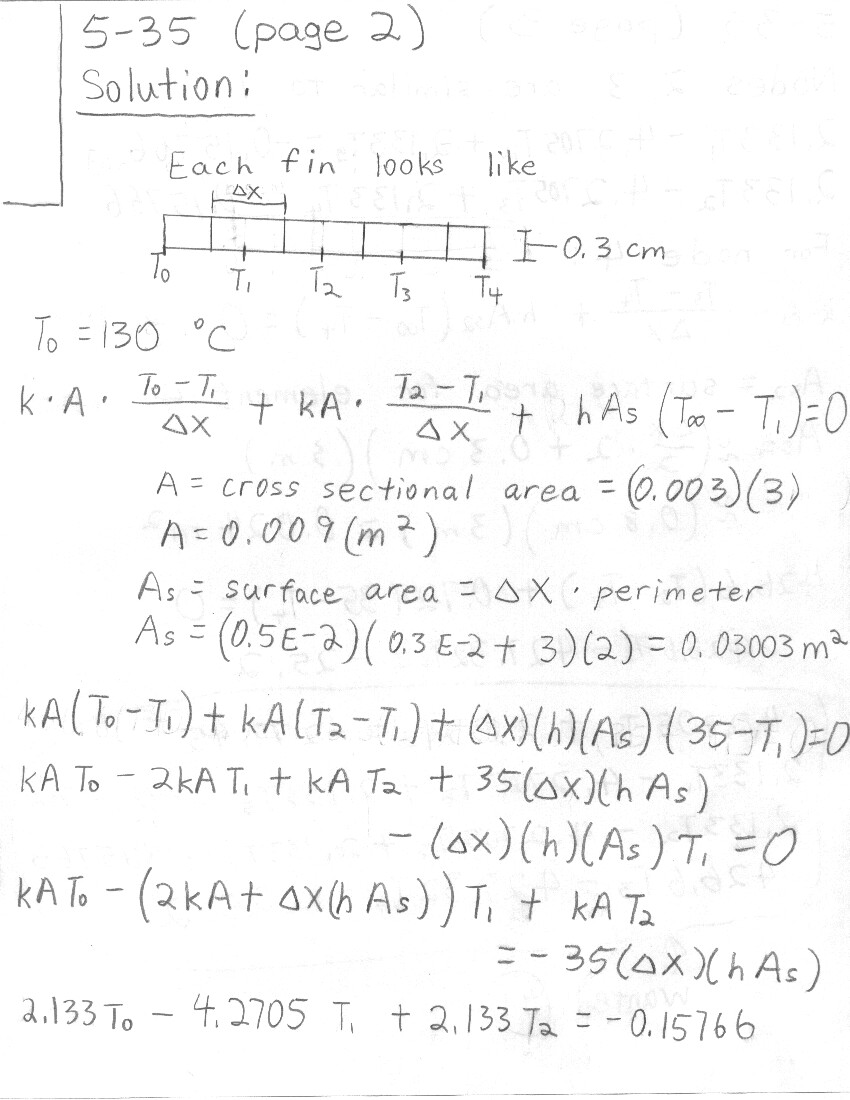 5-35 (page 2)
Solution:
Each fin looks like
Δx
0.3 cm
T₀ T₁ T₂ T₃ T₄
T₀ = 130 °C
k · A · (T₀ - T₁)/Δx + kA · (T₂ - T₁)/Δx + hAs (T∞ - T₁) = 0
A = cross sectional area = (0.003)(3)
A = 0.009 (m²)
As = surface area = Δx · perimeter
As = (0.5E-2)(0.3E-2 + 3)(2) = 0.03003 m²
kA(T₀ - T₁) + kA(T₂ - T₁) + (Δx)(h)(As)(35 - T₁) = 0
kAT₀ - 2kAT₁ + kAT₂ + 35(Δx)(hAs)
- (Δx)(h)(As)T₁ = 0
kAT₀ - (2kA + Δx(hAs))T₁ + kAT₂
= - 35(Δx)(hAs)
2.133T₀ - 4.2705 T₁ + 2.133T₂ = -0.15766